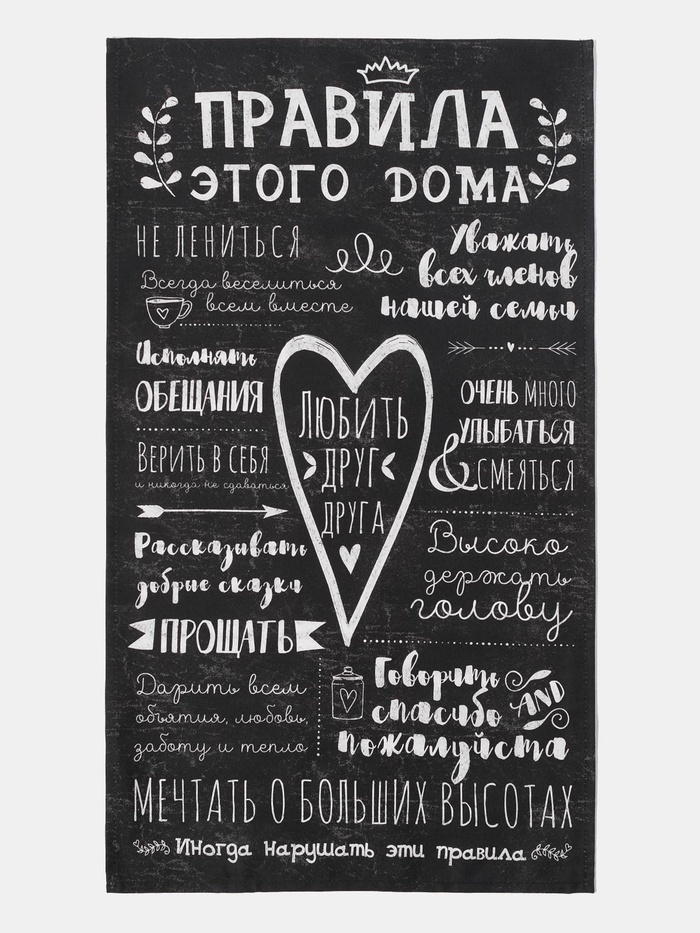 ПРАВИЛА
ЭТОГО ДОМА
НЕ ЛЕНИТЬСЯ
Всегда веселиться
всем вместе
Уважать
всех членов
нашей семьи
Исполнять
ОБЕЩАНИЯ
ВЕРИТЬ В СЕБЯ
и никогда не сдаваться
ЛЮБИТЬ
ДРУГ
ДРУГА
ОЧЕНЬ МНОГО
УЛЫБАТЬСЯ
& СМЕЯТЬСЯ
Рассказывать
добрые сказки
ПРОЩАТЬ
Высоко
держать
голову
Дарить всем
объятия, любовь,
заботу и тепло
Говорить
спасибо AND
пожалуйста
МЕЧТАТЬ О БОЛЬШИХ ВЫСОТАХ
Иногда нарушать эти правила